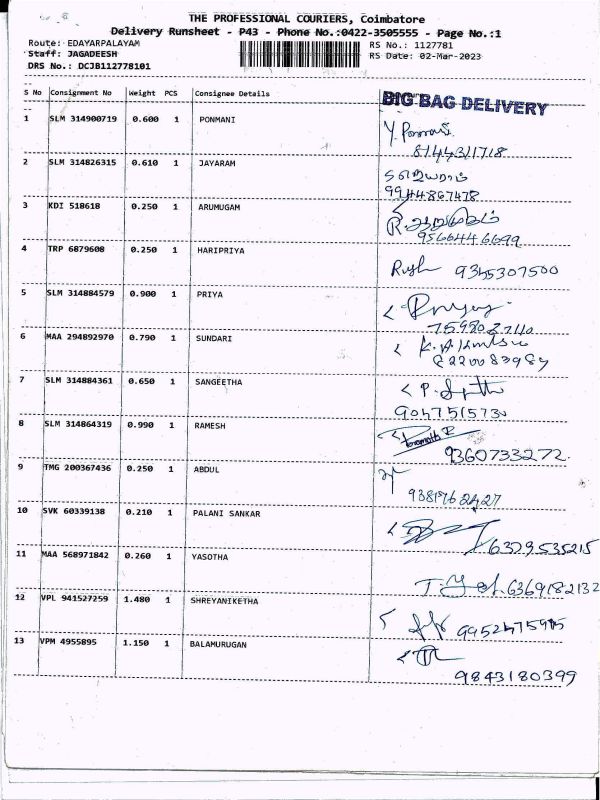 THE PROFESSIONAL COURIERS, Coimbatore
Delivery Runsheet - P43 - Phone No.:0422-3505555 - Page No.:1
Route: EDAYARPALAYAM
Staff: JAGADEESH
DRS No.: DCJB112778101
RS No.: 1127781
RS Date: 02-Mar-2023
S No Consignment No Weight PCS Consignee Details
BIG BAG DELIVERY
1 SLM 314900719 0.600 1 PONMANI
8144311718
2 SLM 314826315 0.610 1 JAYARAM
9944867478
3 KDI 518618 0.250 1 ARUMUGAM
R. ஆறுமுகம்
9566446699
4 TRP 6879608 0.250 1 HARIPRIYA
9345307500
5 SLM 314884579 0.900 1 PRIYA
6 MAA 294892970 0.790 1 SUNDARI
8220083989
7 SLM 314884361 0.650 1 SANGEETHA
9047515730
8 SLM 314864319 0.990 1 RAMESH
9360733272
9 TMG 200367436 0.250 1 ABDUL
10 SVK 60339138 0.210 1 PALANI SANKAR
6379535215
11 MAA 568971842 0.260 1 YASOTHA
6369182132
12 VPL 941527259 1.480 1 SHREYANIKETHA
13 VPM 4955895 1.150 1 BALAMURUGAN
9843180399